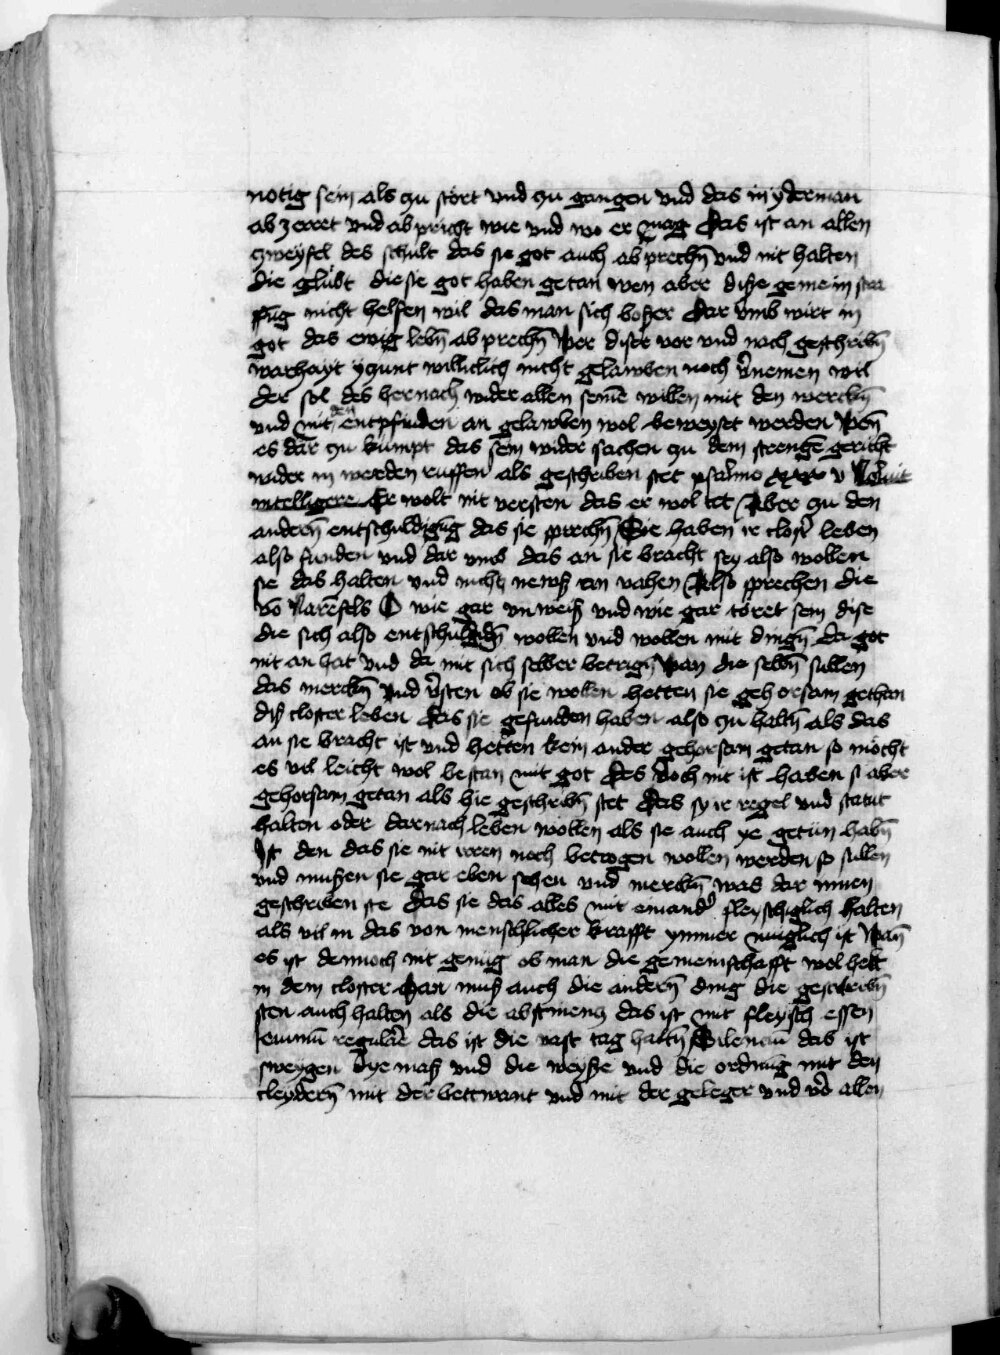 notig sein als zu stört vnd zu gangen vnd das in yderman
ab zerret vnd ab pricht wie vnd wo er mag Das ist an allen
zweyfel des schult das sie got auch ab prechn̄ vnd nit halten
die glübt die sie got haben getan wen aber diße gemein straf
fūg nicht helfen wil das man sich boßer Dar vmb wirt in
got das ewig lebn̄ ab prechn̄ Wer diser vor vnd nach geschribn̄
warhayt yzunt williclich nicht gelawben noch v̄nemen wil
der sol des hernach wider allen seinē willen mit den werckn̄
vnd mit den entpfinden an gelawben wol beweyset werden Wen̄
es dar zu kumpt das sein wider sachen zu dem strengē gericht
wider in werden ruffen als geschriben stet psalmo xxx v Noluit
intelligere Er wolt nit versten das er wol tet Aber zu den
andern̄ entschuldigūg das sie sprechn̄ Sie haben ir closter leben
also funden vnd dar vmb das an sie bracht sey also wollen
sie das halten vnd nichtz newß an vahen Also sprechen die
vō Narēfels O wie gar vnweiß vnd wie gar töret sein dise
die sich also entschuldign̄ wollen vnd wollen mit dingn̄ da got
nit an hat vnd da mit sich selber betrign̄ Wan die selbn̄ sullen
das merckn̄ vnd v̄sten ob sie wollen hetten sie gehorsam gethan
diß closter leben Das sie gefunden haben also zu haltn̄ als das
an sie bracht ist vnd hetten kein ander gehorsam getan so möcht
es vil leicht wol bestan mit got Des doch nit ist haben si aber
gehorsam getan als hie geschribn̄ stet Das sy ir regel vnd statut
halten oder darnach leben wollen als sie auch ye getūn habn̄
Ist den das sie nit irren noch betrogen wollen werden so sullen
vnd mußen sie gar eben sehen vnd merckn̄ was dar innen
geschriben ste Das sie das alles mit einander fleyschiglich halten
als vil in das von menschlicher krafft ymmer muglich ist Wan̄
es ist dennoch nit genug ob man die gemeinschafft wol helt
in dem closter Man muß auch die andern̄ ding die geschribn̄
sten auch halten als die abstinenz das ist nit fleysch essen
Jeiuniū regularē das ist die vast tag haltn̄ Silenciū das ist
sweygen Dye maß vnd die weyße vnd die ordnūg mit den
cleydern̄ mit der bettwant vnd mit der geleger vnd vō allen